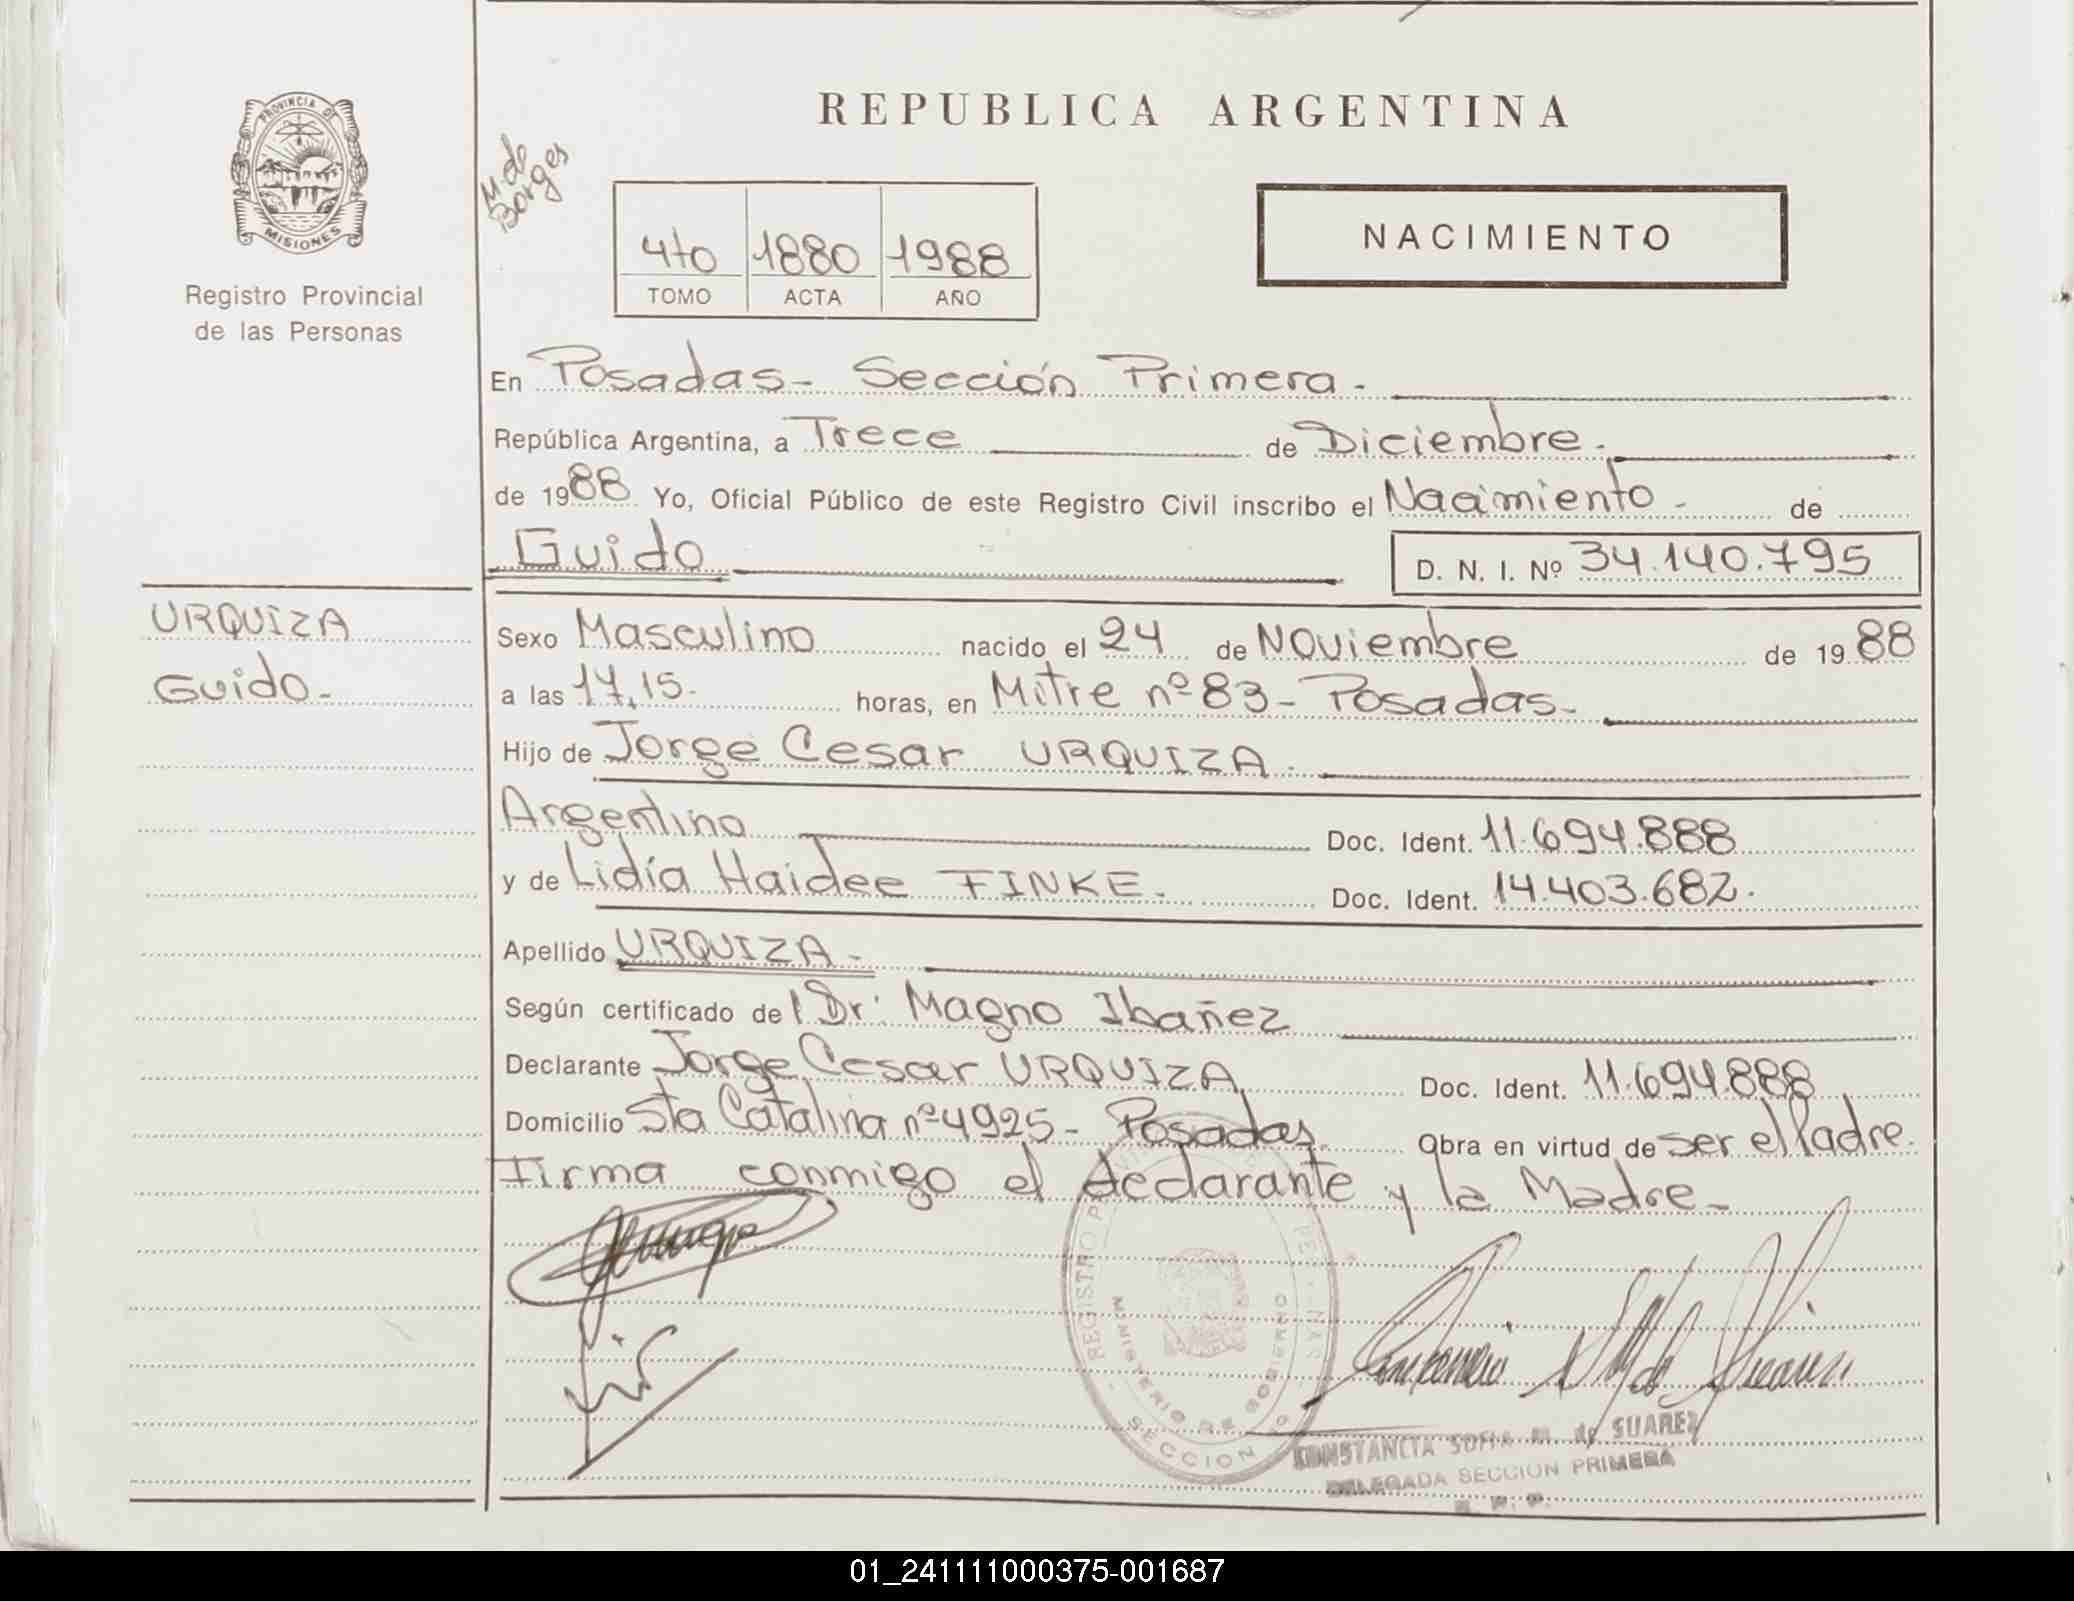 PROVINCIA DE
MISIONES
Registro Provincial
de las Personas
M. de
Borges
REPUBLICA ARGENTINA
4to 1880 1988
TOMO ACTA AÑO
NACIMIENTO
En Posadas - Sección Primera.
República Argentina, a Trece de Diciembre.
de 1988 Yo, Oficial Público de este Registro Civil inscribo el Nacimiento - de
Guido D. N. I. Nº 34.140.795
URQUIZA
Guido.
Sexo Masculino nacido el 24 de Noviembre de 1988
a las 17,15. horas, en Mitre nº 83 - Posadas.
Hijo de Jorge Cesar URQUIZA.
Argentino Doc. Ident. 11.694.888
y de Lidía Haidee FINKE. Doc. Ident. 14.403.682.
Apellido URQUIZA.
Según certificado del Dr. Magno Ibañez
Declarante Jorge Cesar URQUIZA Doc. Ident. 11.694.888
Domicilio Sta Catalina nº 4925 - Posadas. Obra en virtud de ser el Padre.
Firma conmigo el declarante y la Madre.
REGISTRO
MINISTERIO DE GOBIERNO
SECCION
CONSTANCIA SOFIA M. de SUAREZ
DELEGADA SECCION PRIMERA
R. P. P.
01_241111000375-001687